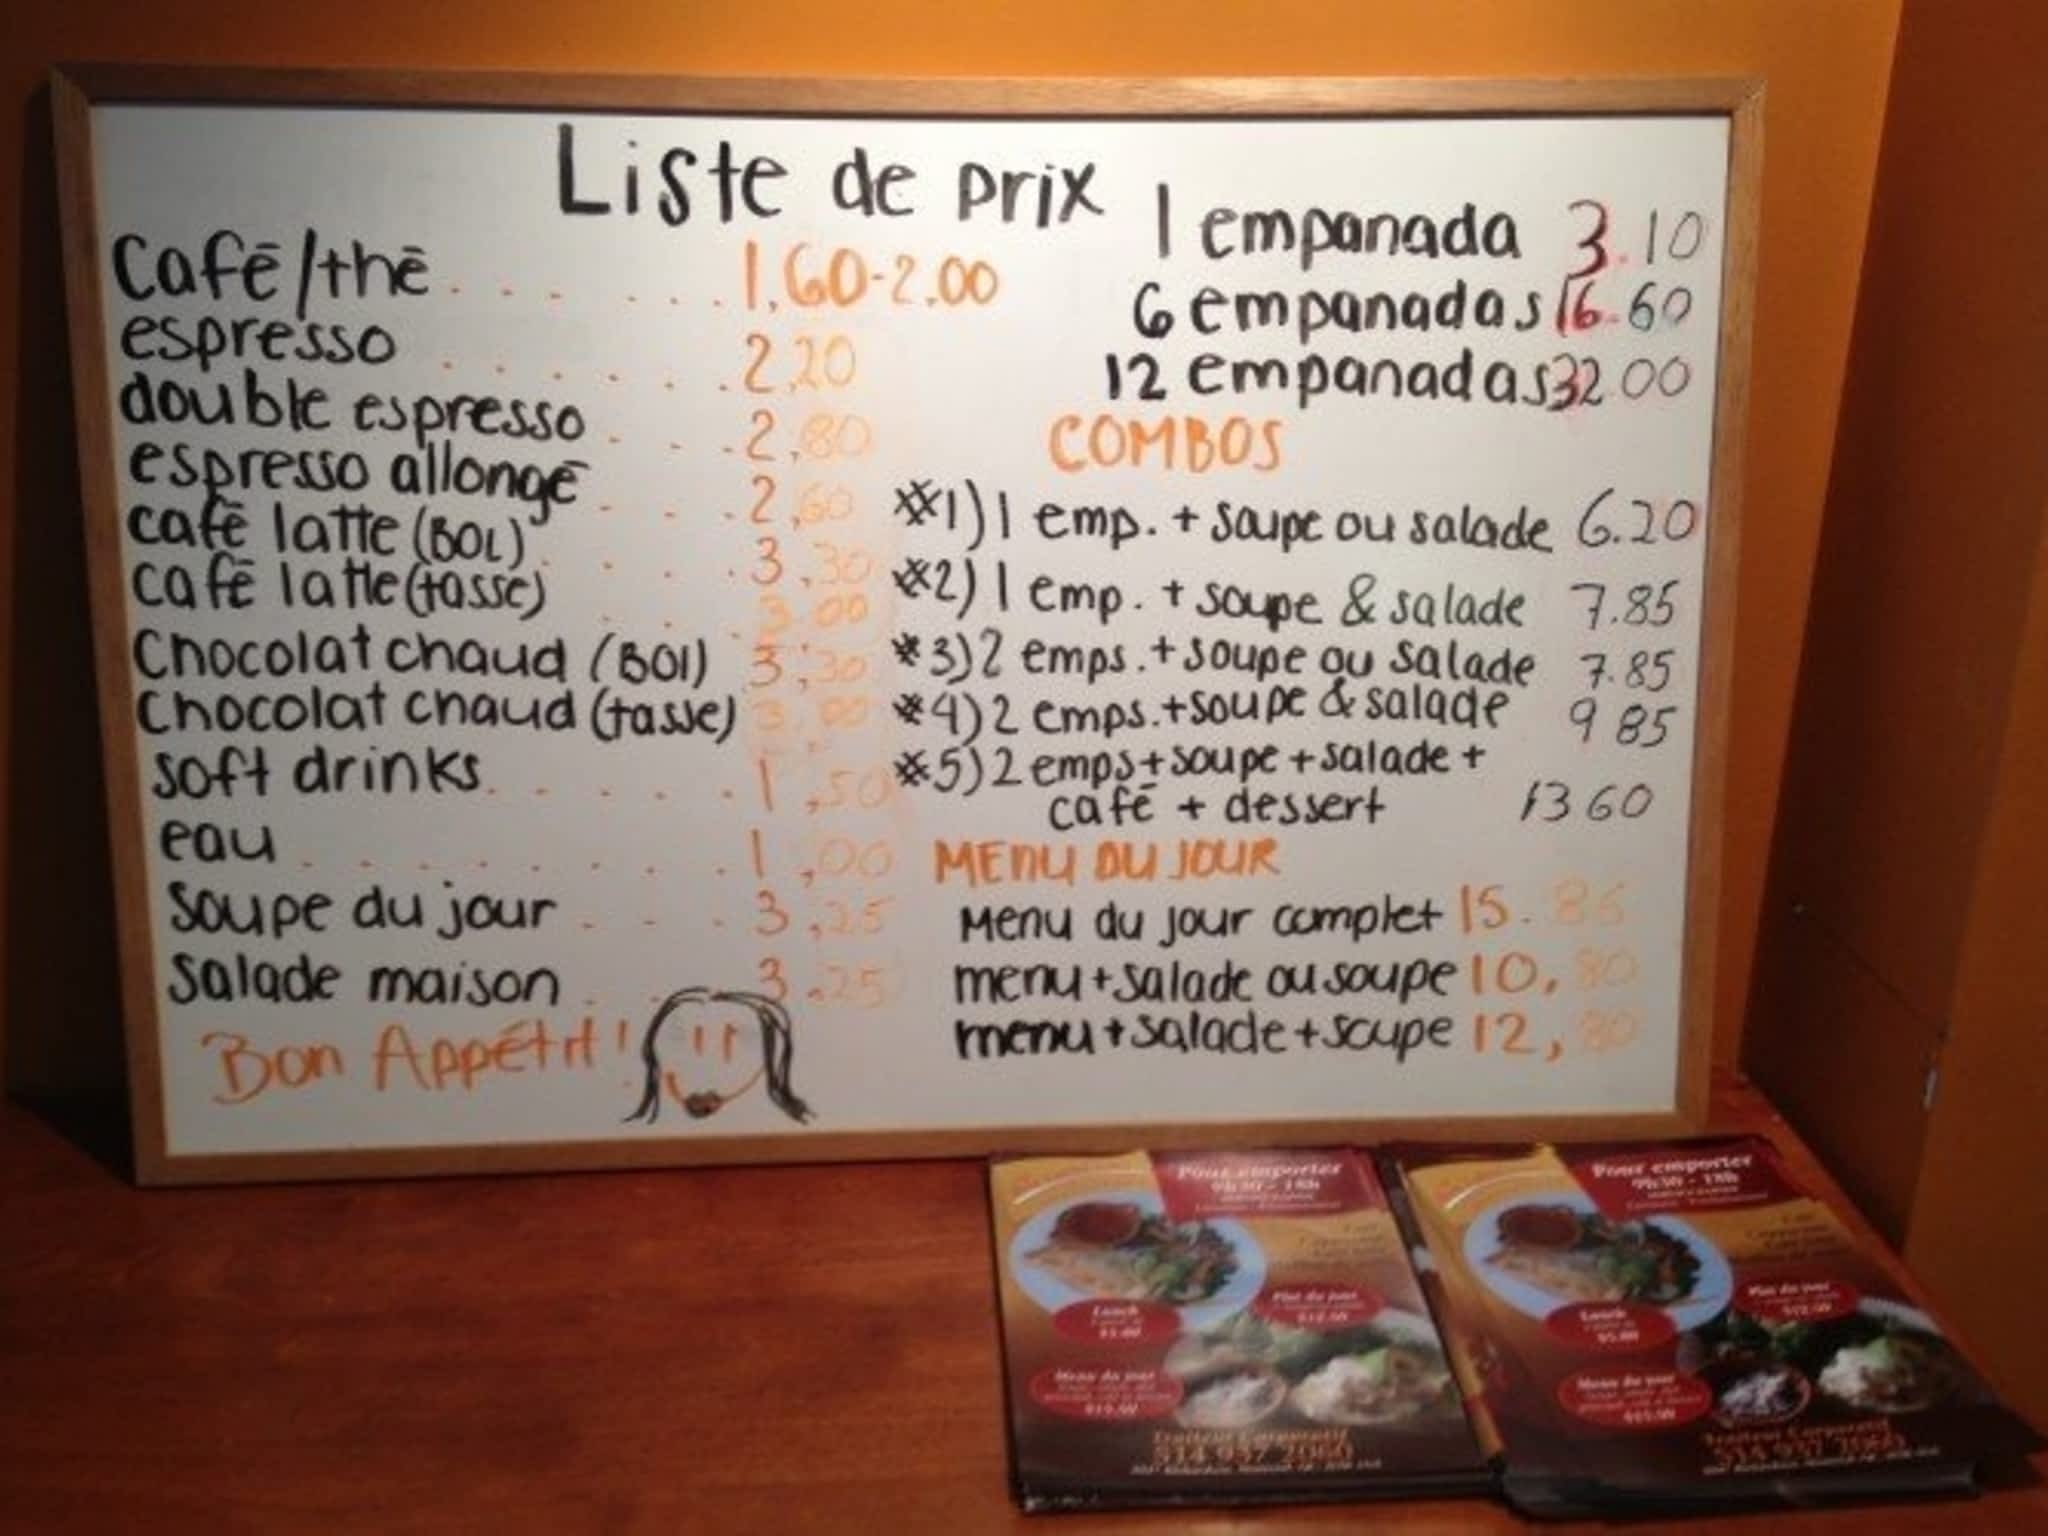 Liste de prix
Café/thé . . . . . . . 1.60-2.00
espresso . . . . . . . 2.20
double espresso . . . 2,80
espresso allongé . . . 2,60
café latte (BOL) . . . . 3,30
café latte (tasse) . . . 3.00
Chocolat chaud (BOl) 3,30
Chocolat chaud (tasse)
soft drinks . . . . . . 1,50
eau . . . . . . . . . 1,00
Soupe du jour . . . 3,25
Salade maison . . . 3,25
Bon Appétit!
1 empanada 3.10
6 empanadas 16.60
12 empanadas 32.00
COMBOS
#1) 1 emp. + soupe ou salade 6.20
#2) 1 emp. + soupe & salade 7.85
#3) 2 emps. + soupe ou salade 7.85
#4) 2 emps. + soupe & salade 9 85
#5) 2 emps + soupe + salade +
café + dessert 13 60
MENU DU JOUR
Menu du jour complet 15.86
menu + salade ou soupe 10,80
menu + salade + soupe 12,80
Pour emporter
9h30 - 18h
Lunch
Plat du jour
Menu du jour
Traiteur Corporatif
514 937 2060
Pour emporter
9h30 - 18h
Lunch
Plat du jour
Menu du jour
Traiteur Corporatif
514 937 2060